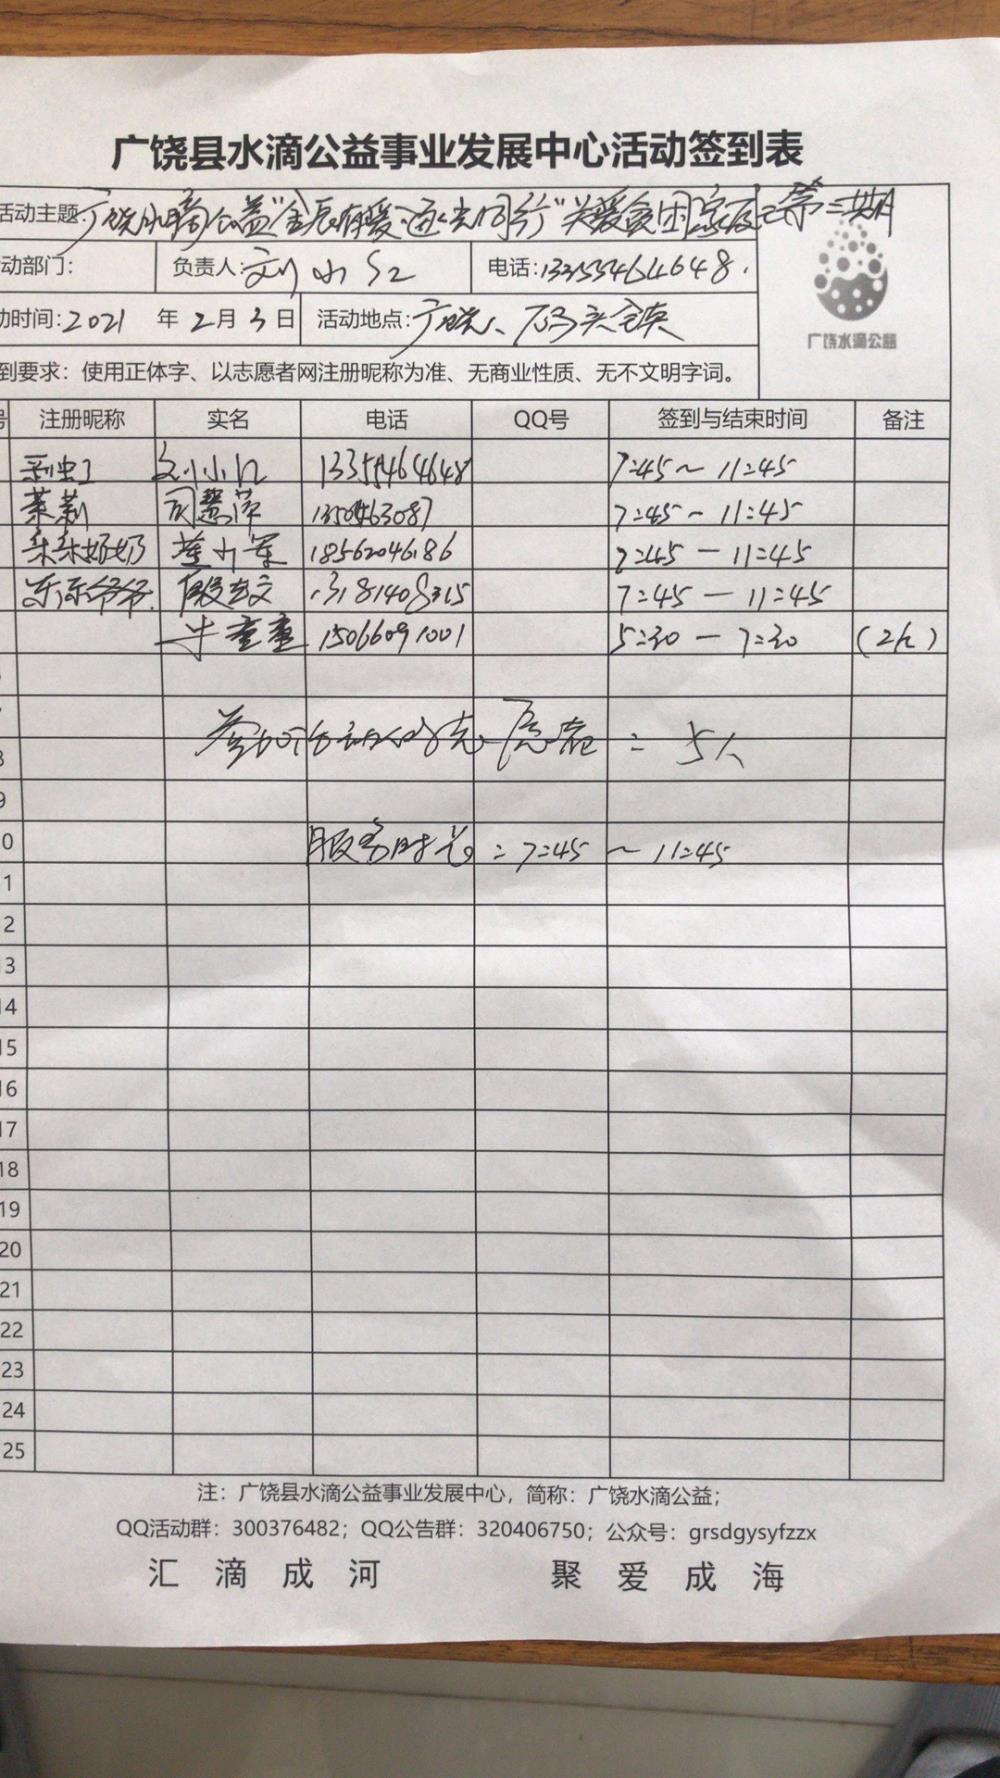 广饶县水滴公益事业发展中心活动签到表
活动主题 广饶水滴公益"金辰有暖 逐光同行"关爱贫困家庭之第二期
动部门： 负责人：刘小红 电话：13355464648.
动时间：2021 年 2月 3 日 活动地点：广饶、石码头镇
到要求：使用正体字、以志愿者网注册昵称为准、无商业性质、无不文明字词。
广饶水滴公益
号 注册昵称 实名 电话 QQ号 签到与结束时间 备注
刘小红 13355464648 7:45～11:45
茉莉 司慧萍 13505463087 7:45-11:45
朵朵奶奶 董小军 18562046186 7:45-11:45
东东爷爷 殷志文 13181408315 7:45-11:45
牛童童 15066091001 5:30-7:30 (2h)
参加活动的志愿者：5人
8
9
服务时长：7:45～11:45
0
1
2
3
14
15
16
17
18
19
20
21
22
23
24
25
注：广饶县水滴公益事业发展中心，简称：广饶水滴公益；
QQ活动群：300376482；QQ公告群：320406750；公众号：grsdgysyfzzx
汇 滴 成 河 聚 爱 成 海